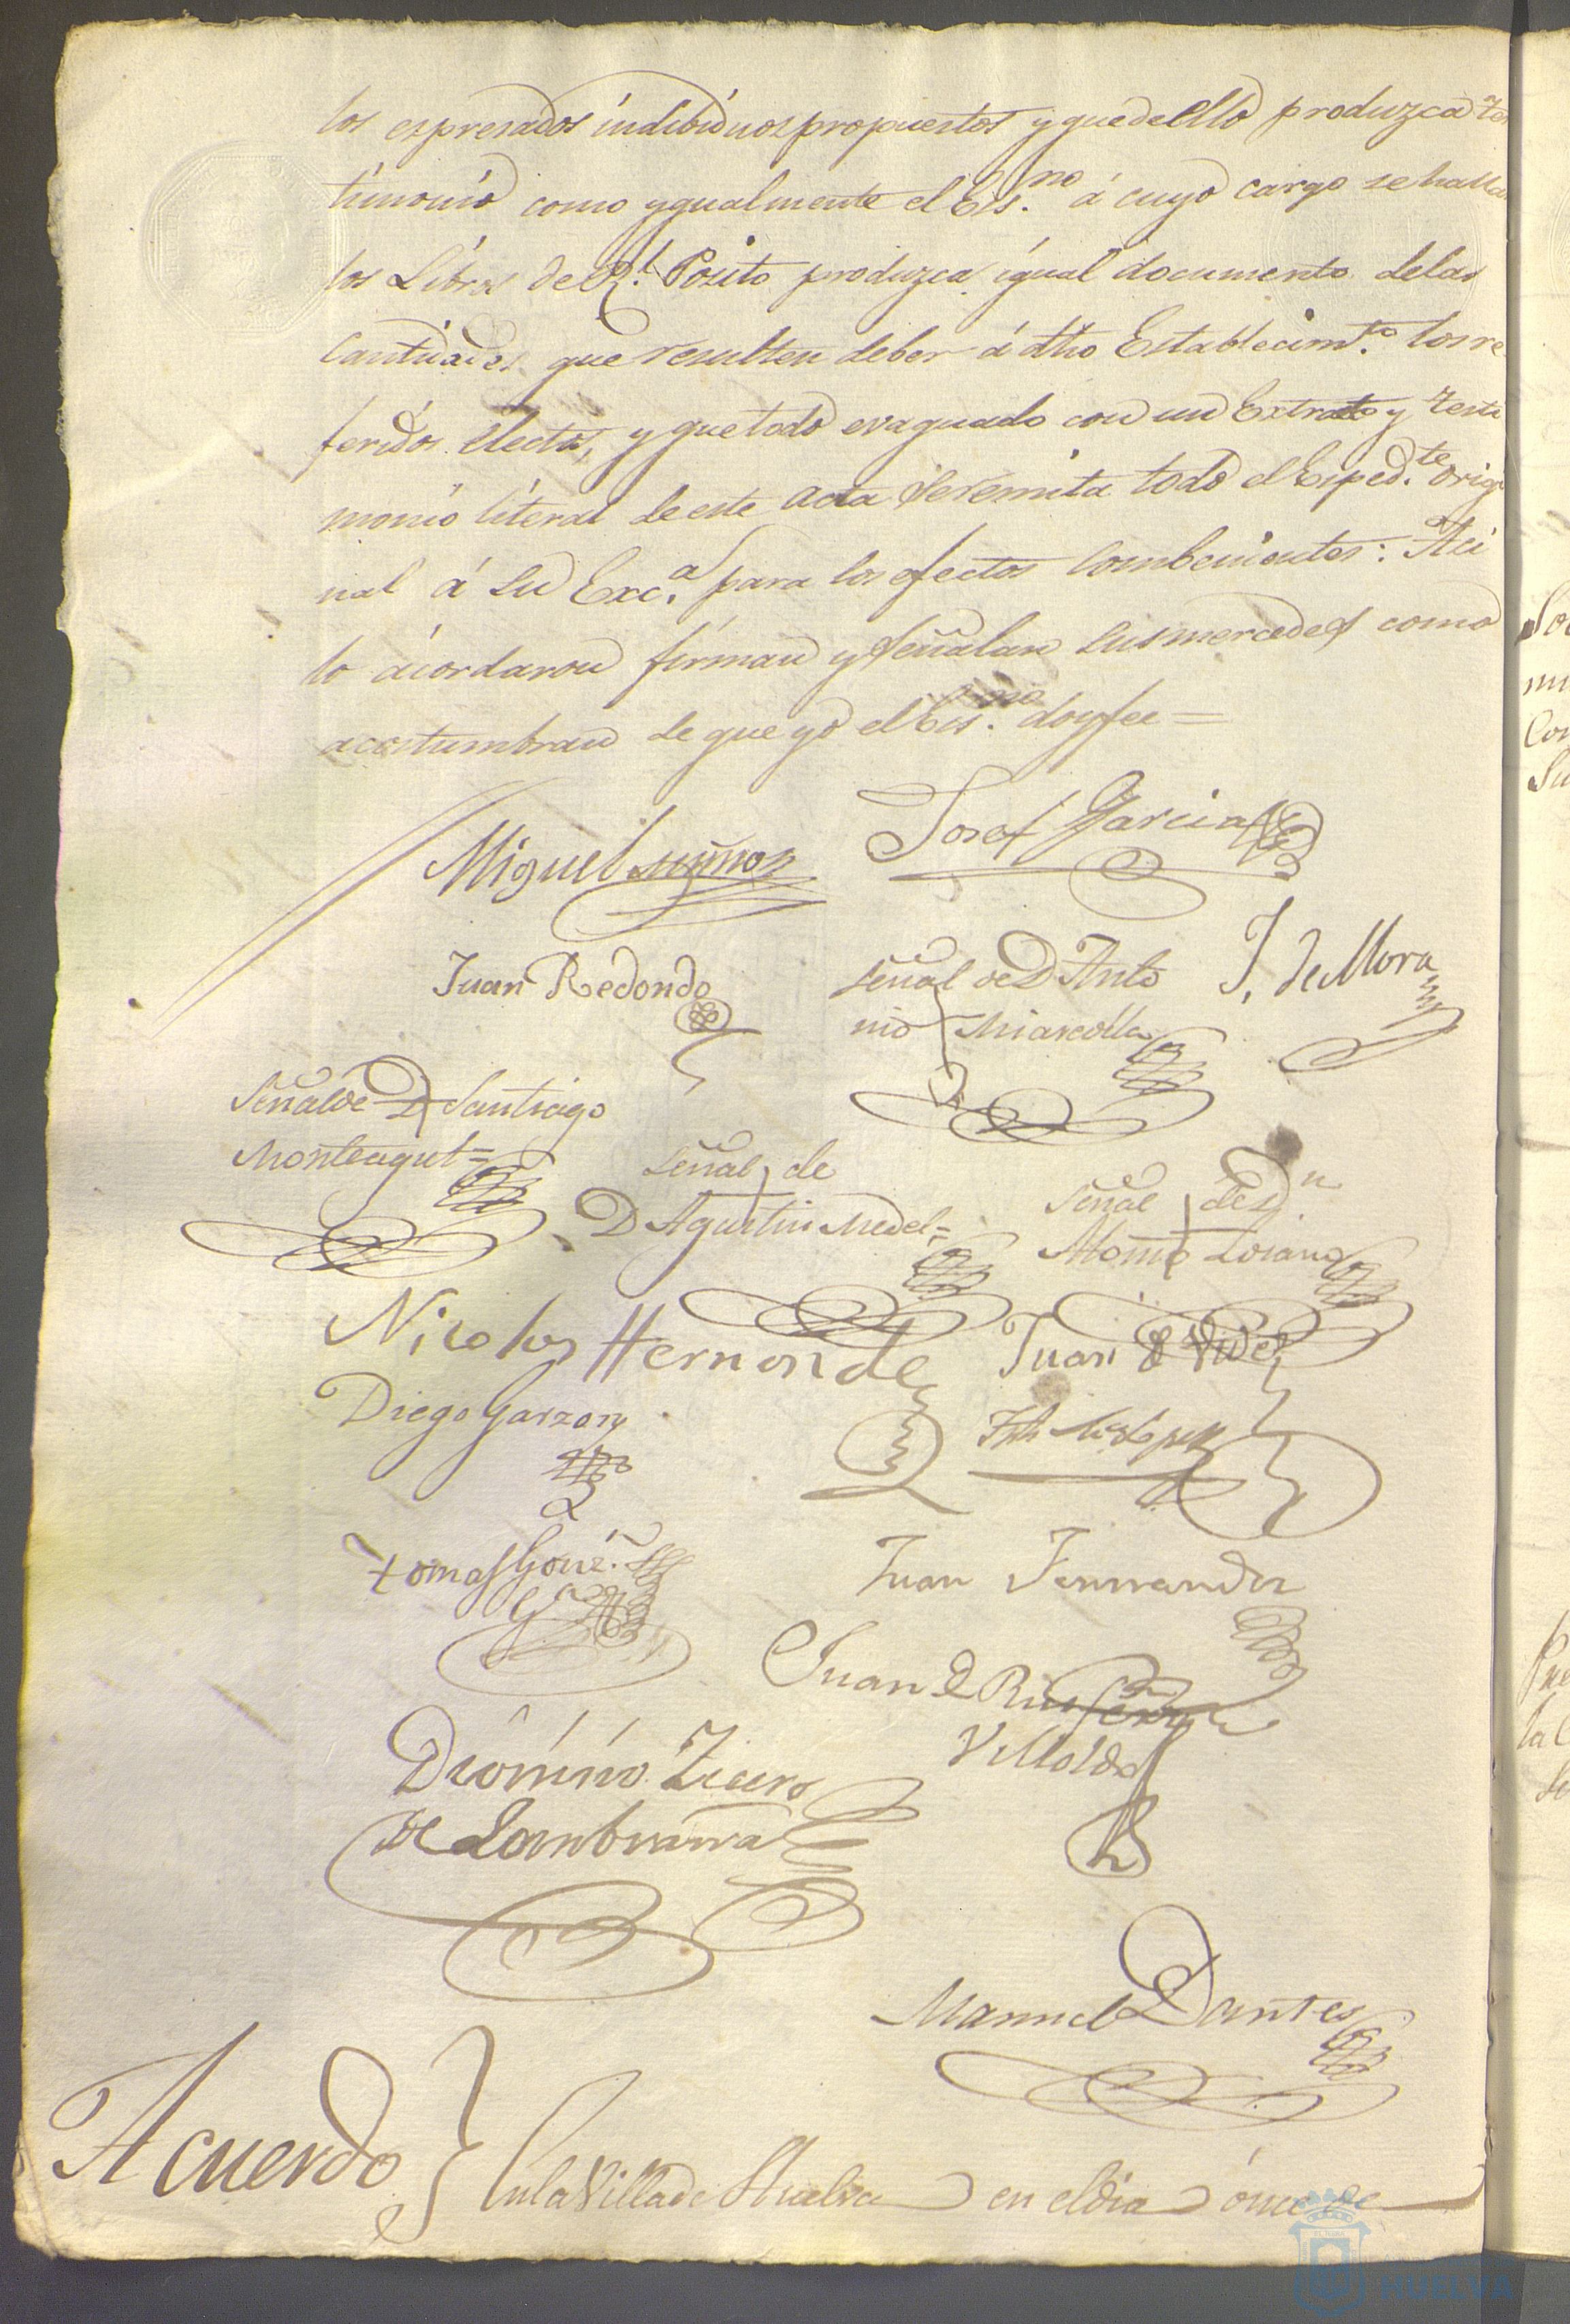 los espresados indibiduos propuestos y que de ello produzca tes
timonio como ygualmente el Es.no á cuyo cargo se hallan
los Libros de Rl. Posito produzca igual documento de las
Cantidades que resulten deber á dho Establecimto. los re
feridos electos, y que todo evaquado con un Extrato y testi
monio literal de este acta se remita todo el Esped.te orig
nal á su Exc.a para los efectos combenientes: Aci
lo acordaron firman y señalan sus mercedes como
acostumbran de que yo el Es.no doy fee =
Miguel Josef Garcia
Juan Redondo
señal de D Anto
nio
J. de Mora
Señal de D Santiago
Monteagut =
señal de
D Agustin Medel =
señal de Dn.
Alonso
Nicolas Hernande
Juan
Diego Garzon
tomas Gonz.
Juan Fernandez
Juan d
Villalda
Dionisio
de
Manuel Dantes
Acuerdo } En la Villa de Huelva en el dia once de
HUELVA